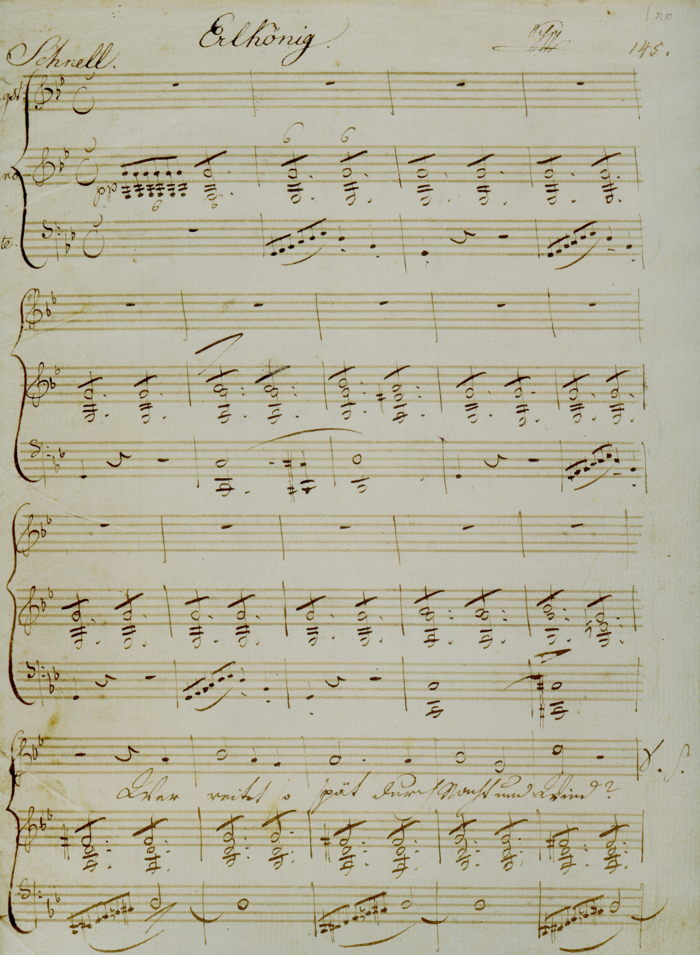 Erlkönig.
145.
Schnell.
6 6
pp
6 6
Wer reitet so spät durch Nacht und Wind?